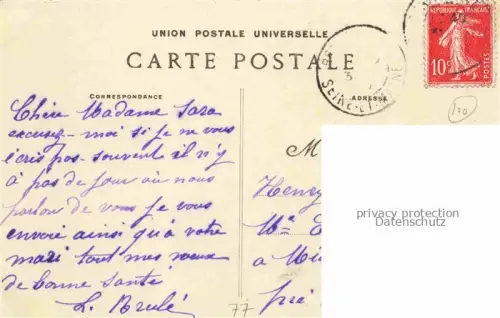 UNION POSTALE UNIVERSELLE
CARTE POSTALE
CORRESPONDANCE
ADRESSE
RÉPUBLIQUE FRANÇAISE
10c
POSTES
SEINE-ET-
Chère Madame Sara
excusez-moi si je ne vous
écris pas souvent il n'y
à pas de jour où nous
parlon de vous je vous
envoie ainsi qu'à votre
mari tout mes vœux
de bonne santé
L. Brulé
M
Henry
Mme
à
près
privacy protection
Datenschutz
77